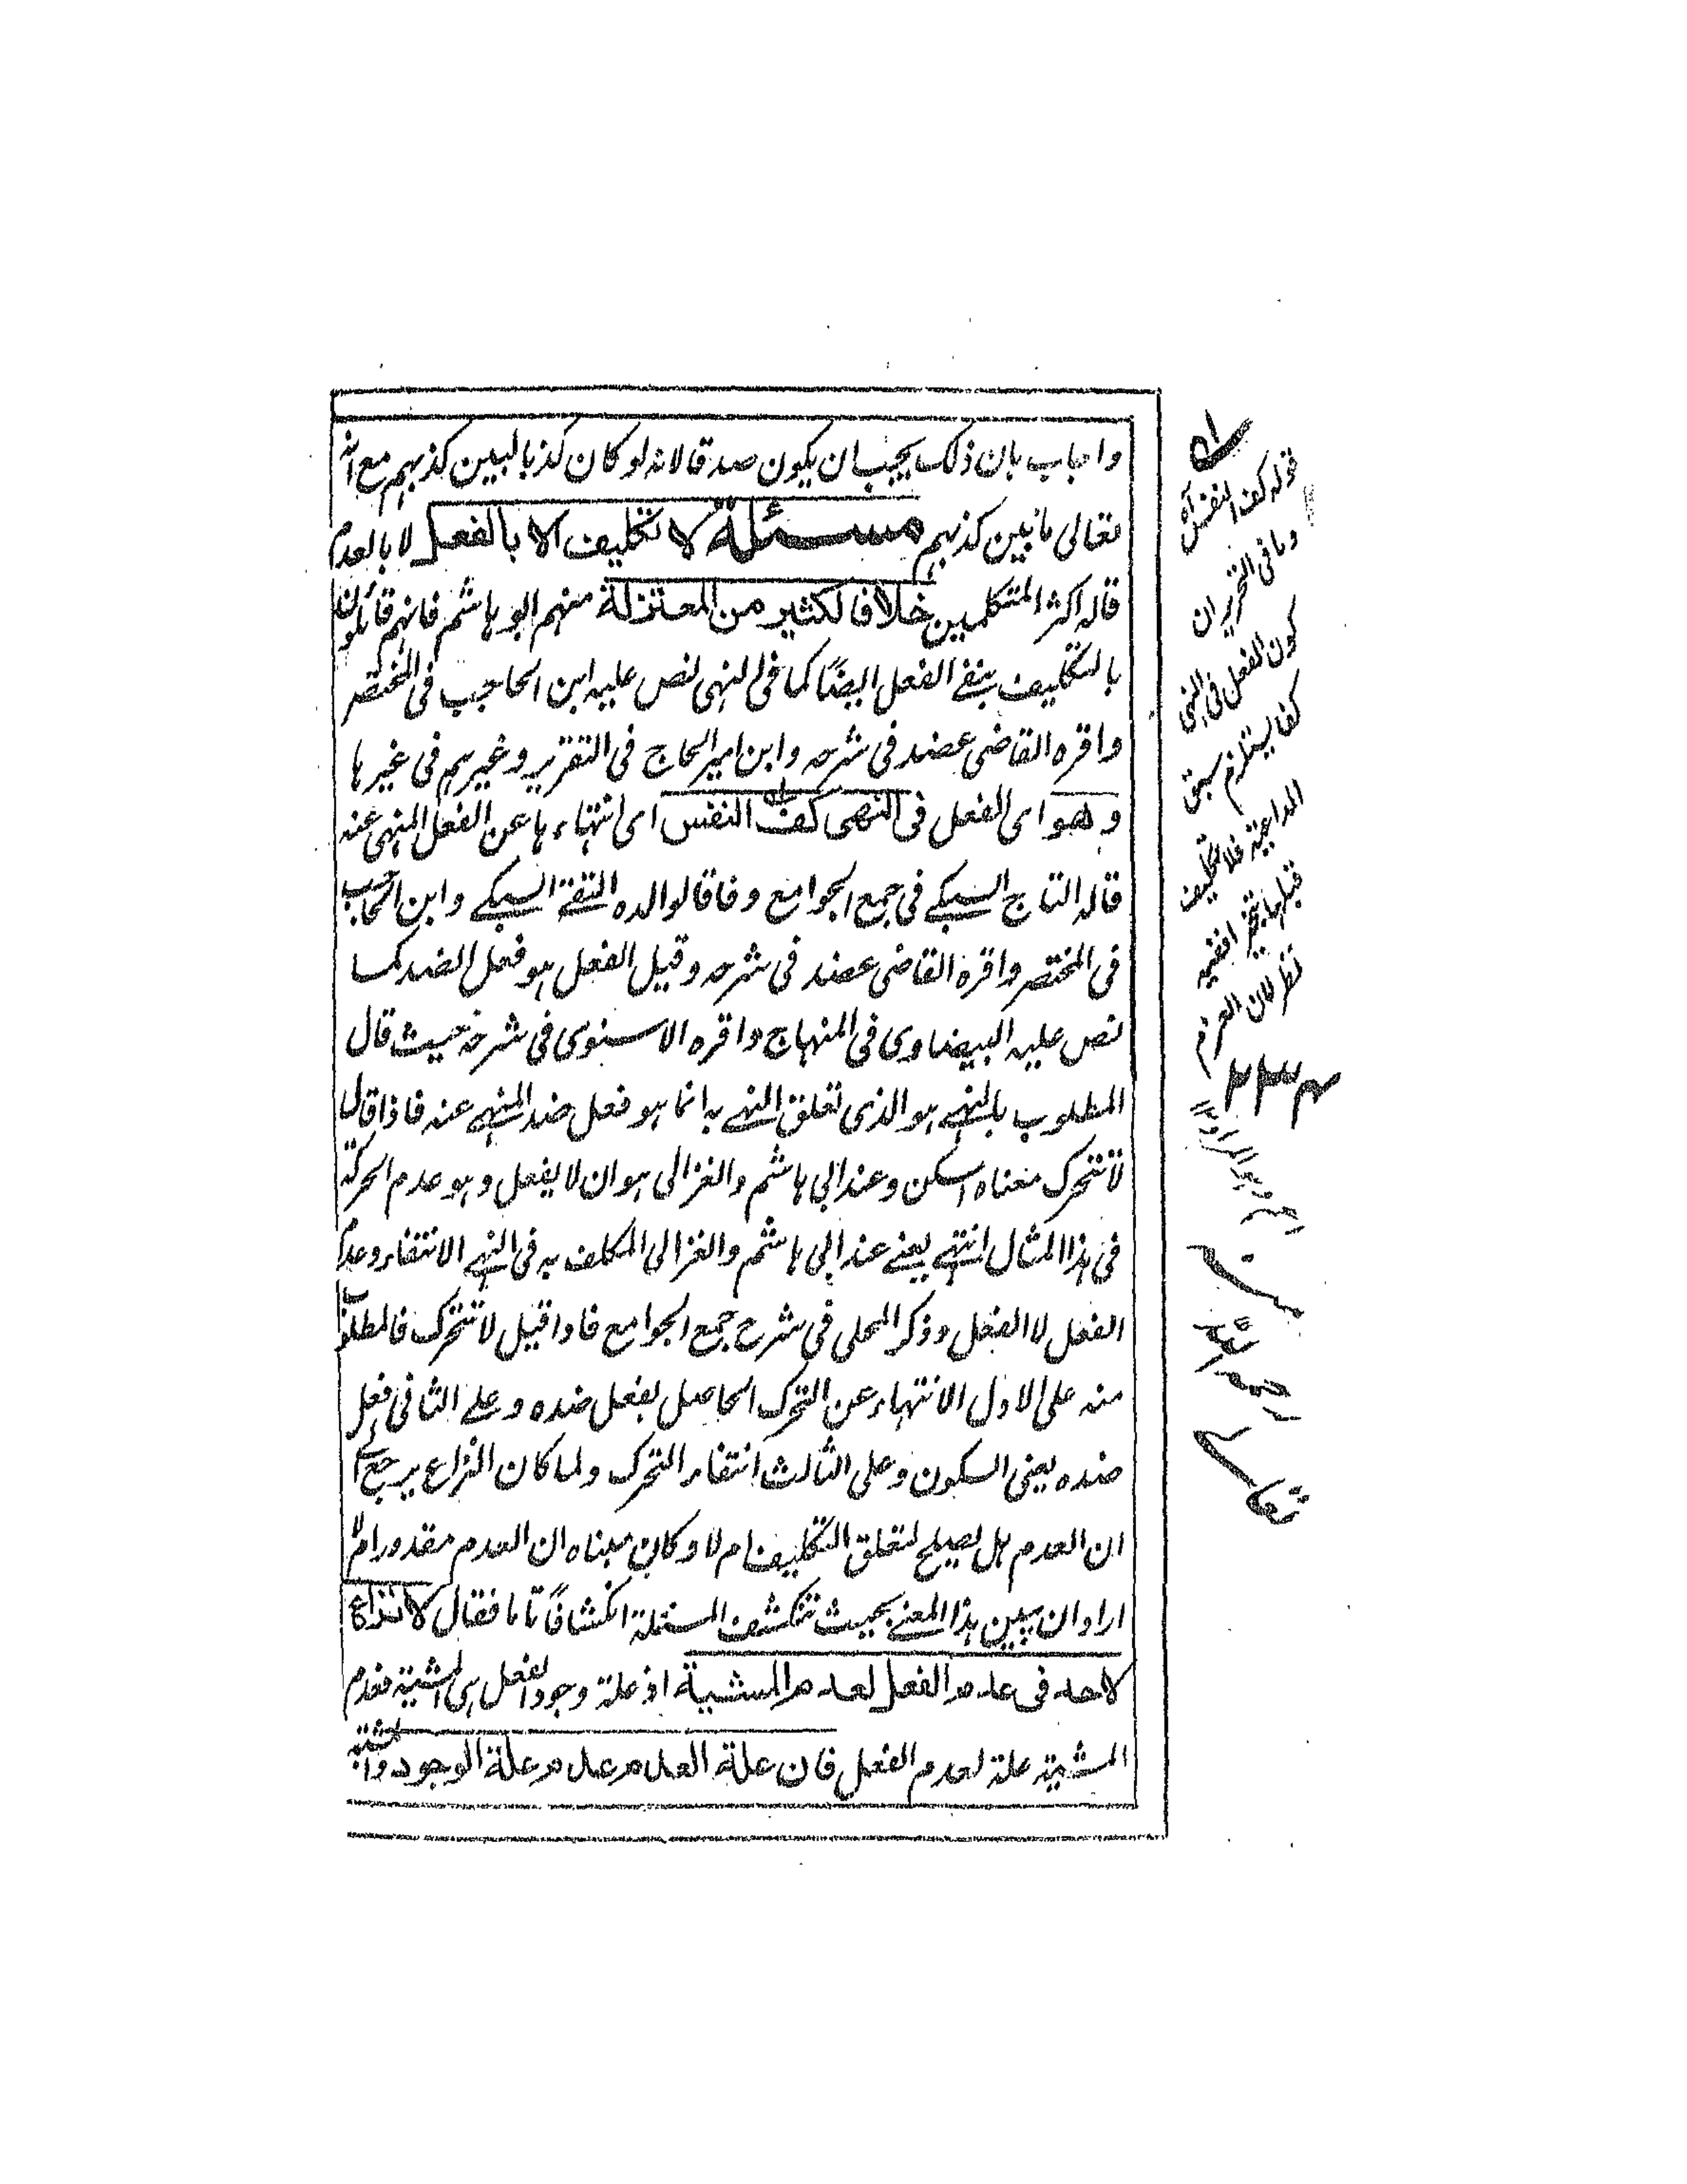 واجاب بان ذلك يجب ان يكون صدقا لانه لو كان كذبا لبين كذبهم مع انه
تعالى ما بين كذبهم مسئلة لا تكليف الا بالفعل لا بالعدم
قاله اكثر المتكلمين خلافا لكثير من المعتزلة منهم ابو هاشم فانهم قائلون
بالتكليف بنفي الفعل ايضًا كما في النهي نص عليه ابن الحاجب في المختصر
واقره القاضي عضد في شرحه وابن امير الحاج في التقرير وغيرهم في غيرها
وهو اى الفعل في النهى كف النفس اى انتهاءها عن الفعل المنهى عنه
قاله التاج السبكي في جمع الجوامع وفاقا لوالده التقي السبكي وابن الحاجب
في المختصر واقره القاضي عضد في شرحه وقيل الفعل هو فعل الضد كما
نص عليه البيضاوى في المنهاج واقره الاسنوى في شرحه حيث قال
المطلوب بالنهي هو الذى تعلق النهي به انما هو فعل ضد المنهي عنه فاذا قال
لا تتحرك معناه اسكن وعند ابي هاشم والغزالى هو ان لا يفعل وهو عدم الحركة
في هذا المثال انتهى يعني عند ابي هاشم والغزالى المكلف به في النهي الانتفاء وعدم
الفعل لا الفعل وذكر المحلى في شرح جمع الجوامع فاذا قيل لا تتحرك فالمطلوب
منه على الاول الانتهاء عن التحرك الحاصل بفعل ضده وعلى الثاني فعل
ضده يعنى السكون وعلى الثالث انتفاء التحرك ولما كان النزاع يرجع الى
ان العدم هل يصلح لتعلق التكليف ام لا وكان مبناه ان العدم مقدور ام لا
اراد ان يبين هذا المعنى بحيث تنكشف المسئلة انكشافًا تاما فقال لا نزاع
لاحد في عدم الفعل لعدم المشية اذ علة وجود الفعل هى المشية فعدم
المشية علة لعدم الفعل فان علة العدم عدم علة الوجود والمشية
قوله كف النفس آه
وما في التحرير ان
كون الفعل في النهي
كفا يستلزم سبق
الداعية فلا تكليف
قبلها تنجيزا ففيه
نظر لان العزم